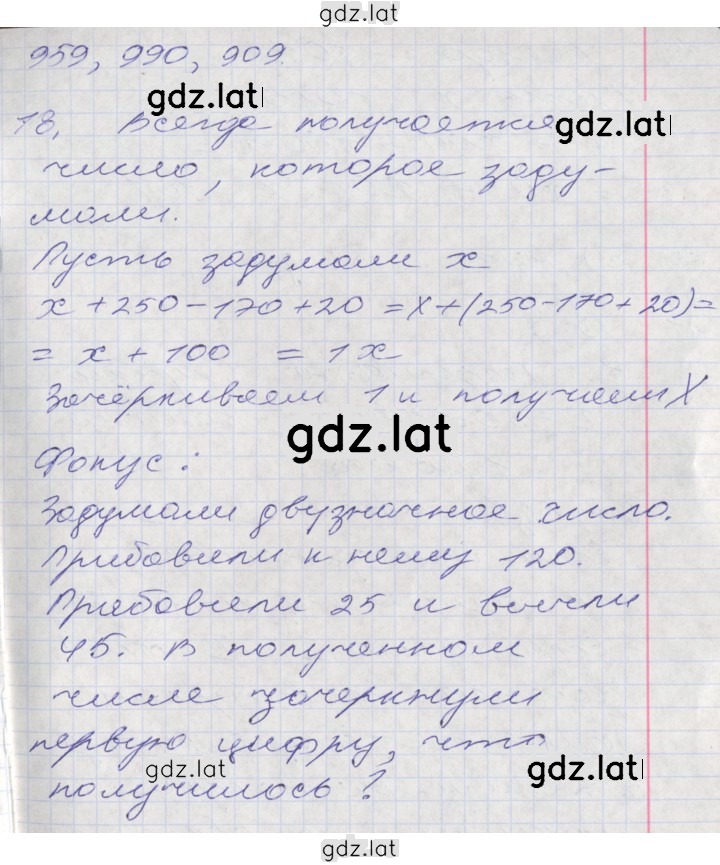 gdz.lat
959, 990, 909.
gdz.lat
18, Всегда получается
gdz.lat
число, которое заду-
мали.
Пусть задумали x
x + 250 - 170 + 20 = x + (250 - 170 + 20) =
= x + 100 = 1x
Зачёркиваем 1 и получаем x
gdz.lat
Фокус:
Задумали двузначное число.
Прибавили к нему 120.
Прибавили 25 и вычли
45. В полученном
числе зачеркнули
первую цифру, что
gdz.lat
gdz.lat
получилось?
gdz.lat